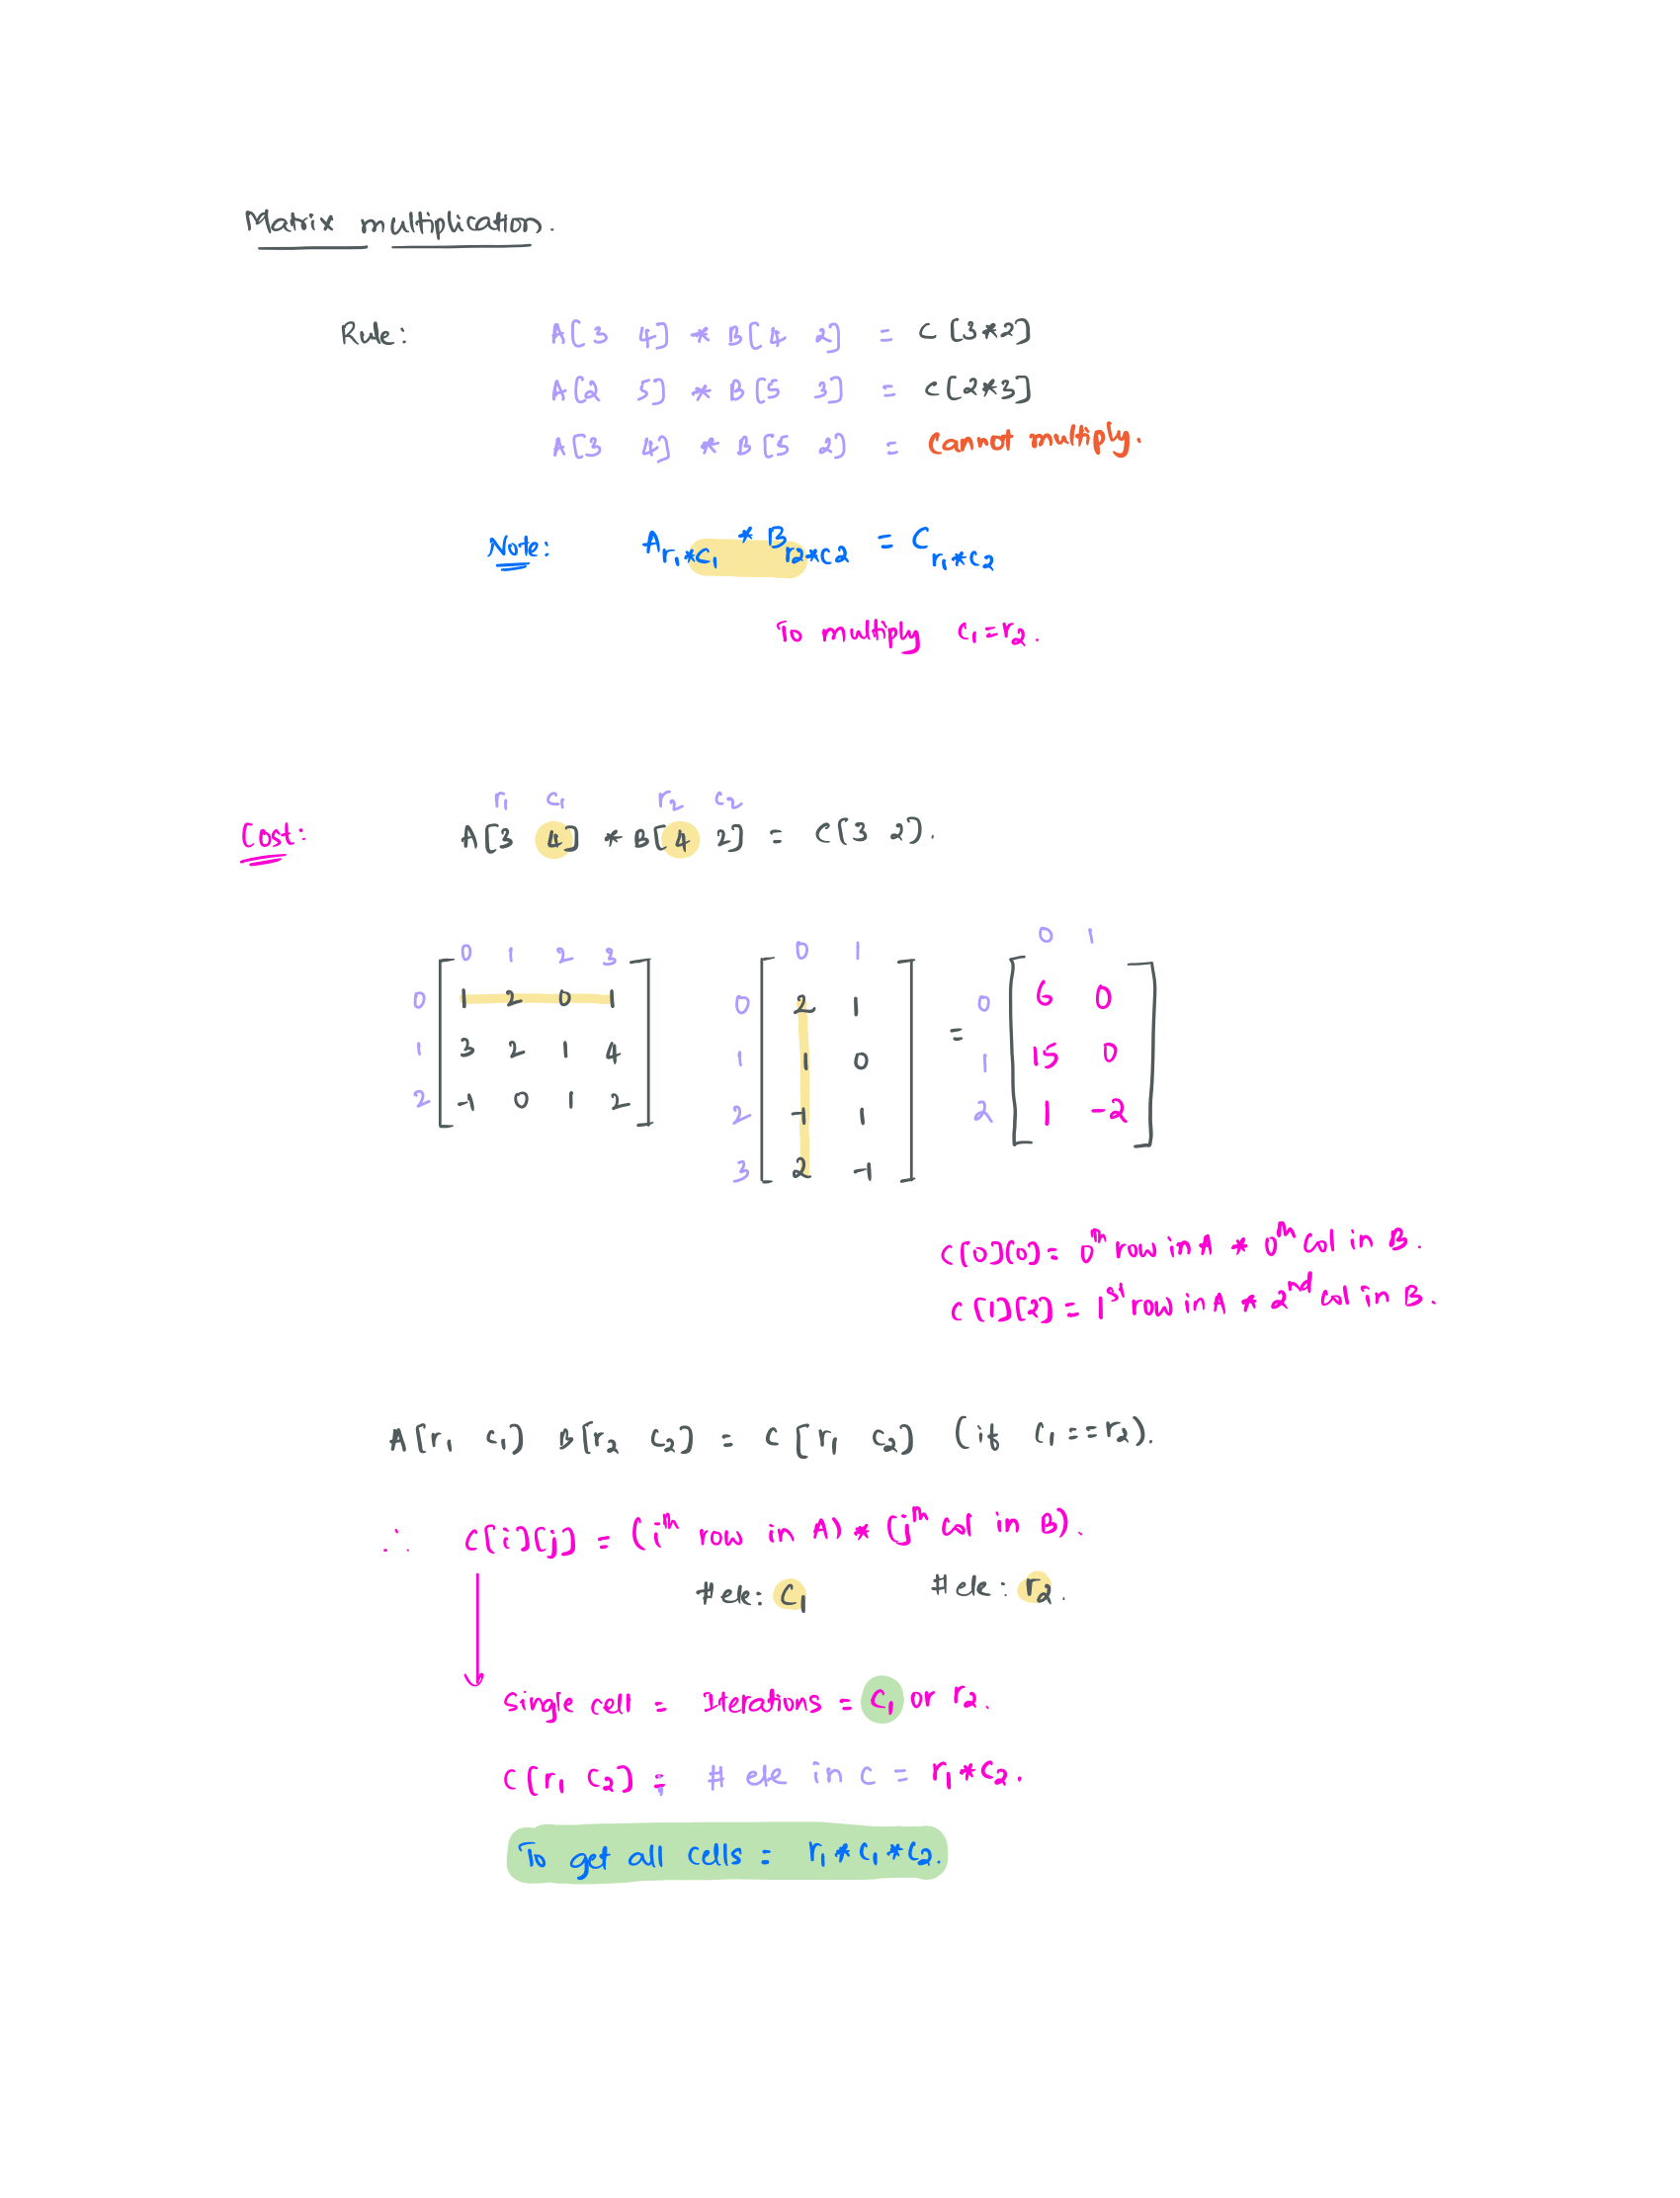 Matrix multiplication.
Rule: A[3 4] * B[4 2] = C[3*2]
A[2 5] * B[5 3] = C[2*3]
A[3 4] * B[5 2] = Cannot multiply.
Note: A r1*c1 * B r2*c2 = C r1*c2
To multiply c1=r2.
r1 c1 r2 c2
Cost: A[3 4] * B[4 2] = C[3 2].
0 1 2 3 0 1 0 1
0 1 2 0 1 0 2 1 = 0 6 0
1 3 2 1 4 1 1 0 1 15 0
2 -1 0 1 2 2 -1 1 2 1 -2
3 2 -1
C[0][0] = 0th row in A * 0th col in B.
C[1][2] = 1st row in A * 2nd col in B.
A[r1 c1] B[r2 c2] = C[r1 c2] (if c1==r2).
∴ C[i][j] = (ith row in A) * (jth col in B).
# ele: c1 # ele: r2.
Single cell = Iterations = c1 or r2.
C[r1 c2] ; # ele in C = r1*c2.
To get all cells = r1*c1*c2.